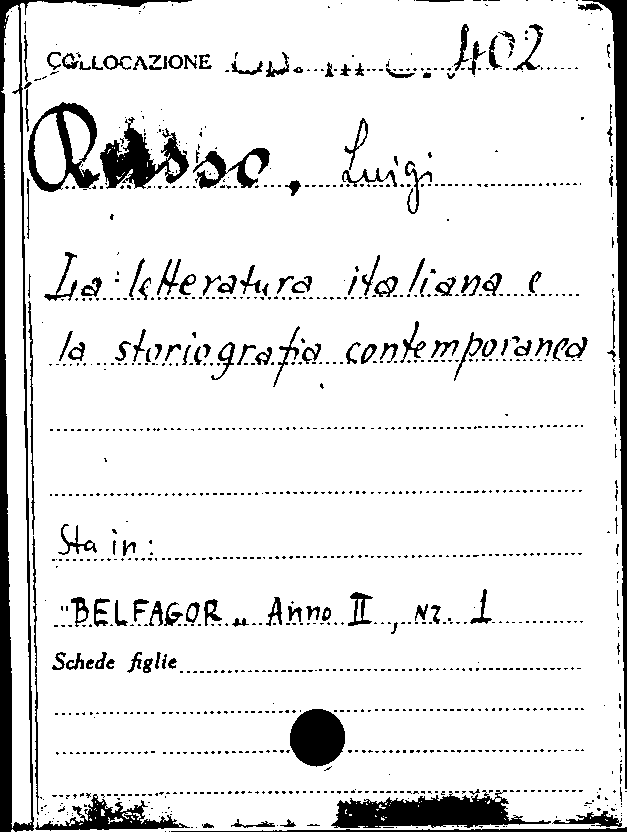 COLLOCAZIONE 402
Russo, Luigi
La letteratura italiana e
la storiografia contemporanea
Sta in:
"BELFAGOR" Anno II, nr. 1
Schede figlie